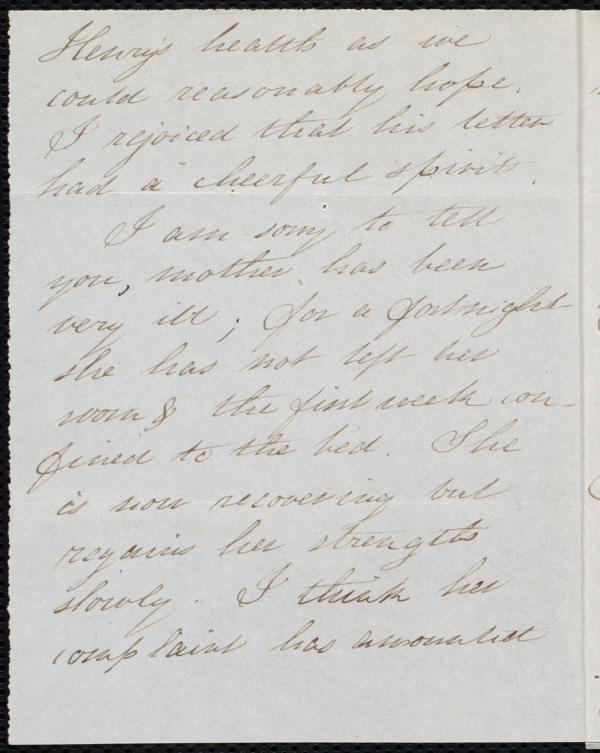 Henry's health as we
could reasonably hope.
I rejoiced that his letter
had a cheerful spirit.
I am sorry to tell
you, mother has been
very ill; for a fortnight
she has not left her
room & the first week con-
fined to the bed. She
is now recovering but
regains her strength
slowly. I think her
complaint has amounted